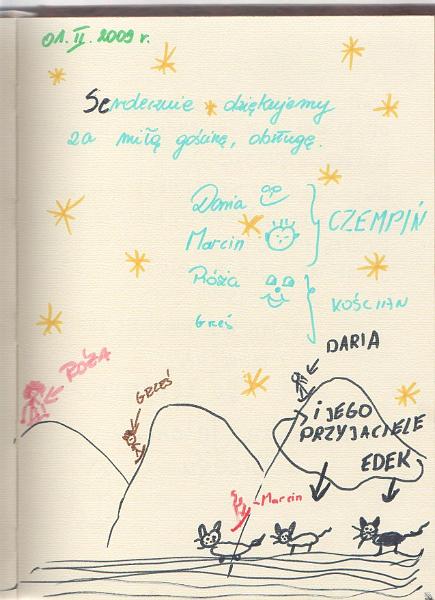 01. II. 2009 r.
Serdecznie dziękujemy
za miłą gościnę, obsługę.
Daria
Marcin
CZEMPIŃ
Rózia
Grześ
KOŚCIAN
DARIA
RÓZA
GRZEŚ
I JEGO
PRZYJACIELE
EDEK
-Marcin